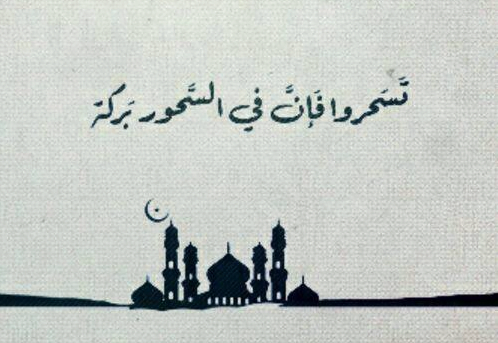 تَّسَحروا فَإنَّ في السَّحور بَركة